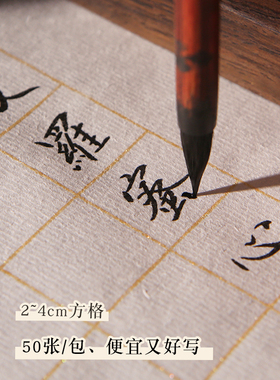 羅蜜心
2~4cm方格
50张/包、便宜又好写